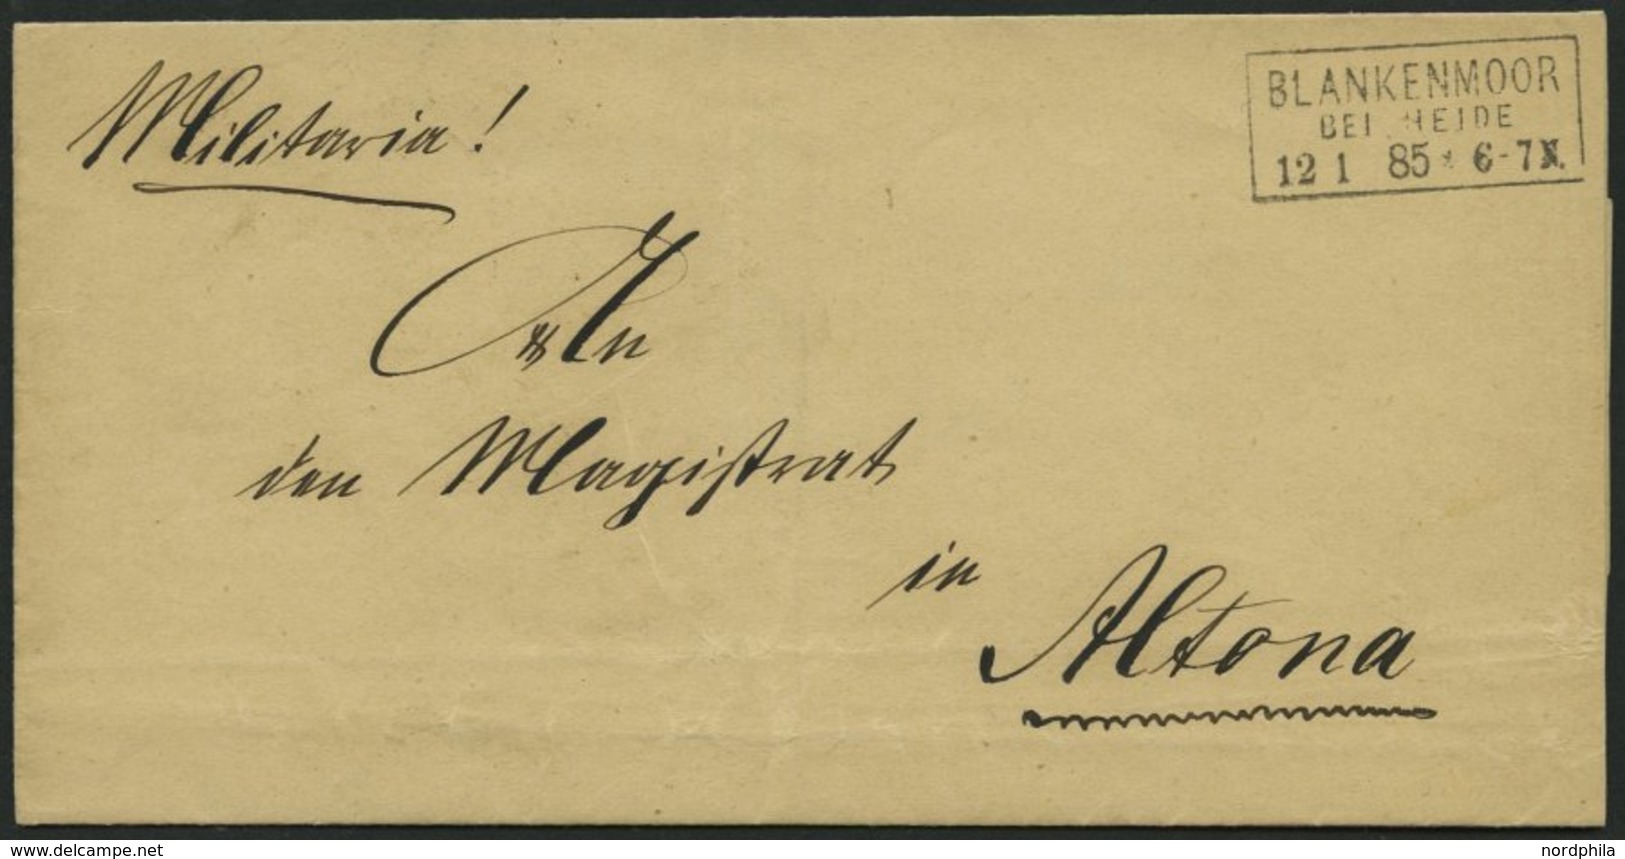 Militaria!
BLANKENMOOR
BEI HEIDE
12 1 85 * 6-7 N.
An
den Magistrat
in
Altona
www.delcampe.net
nordphila